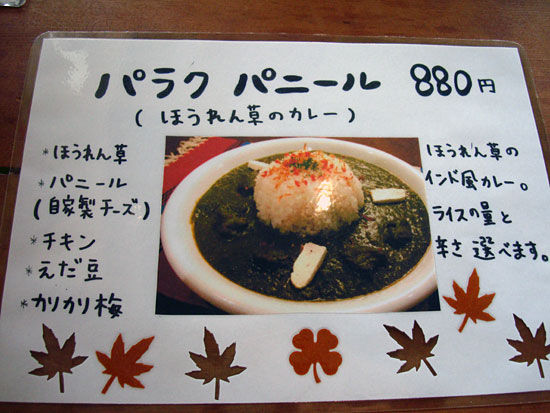 パラク パニール 880円
(ほうれん草のカレー)
*ほうれん草
*パニール
(自家製チーズ)
*チキン
*えだ豆
*カリカリ梅
ほうれん草の
インド風カレー。
ライスの量と
辛さ選べます。